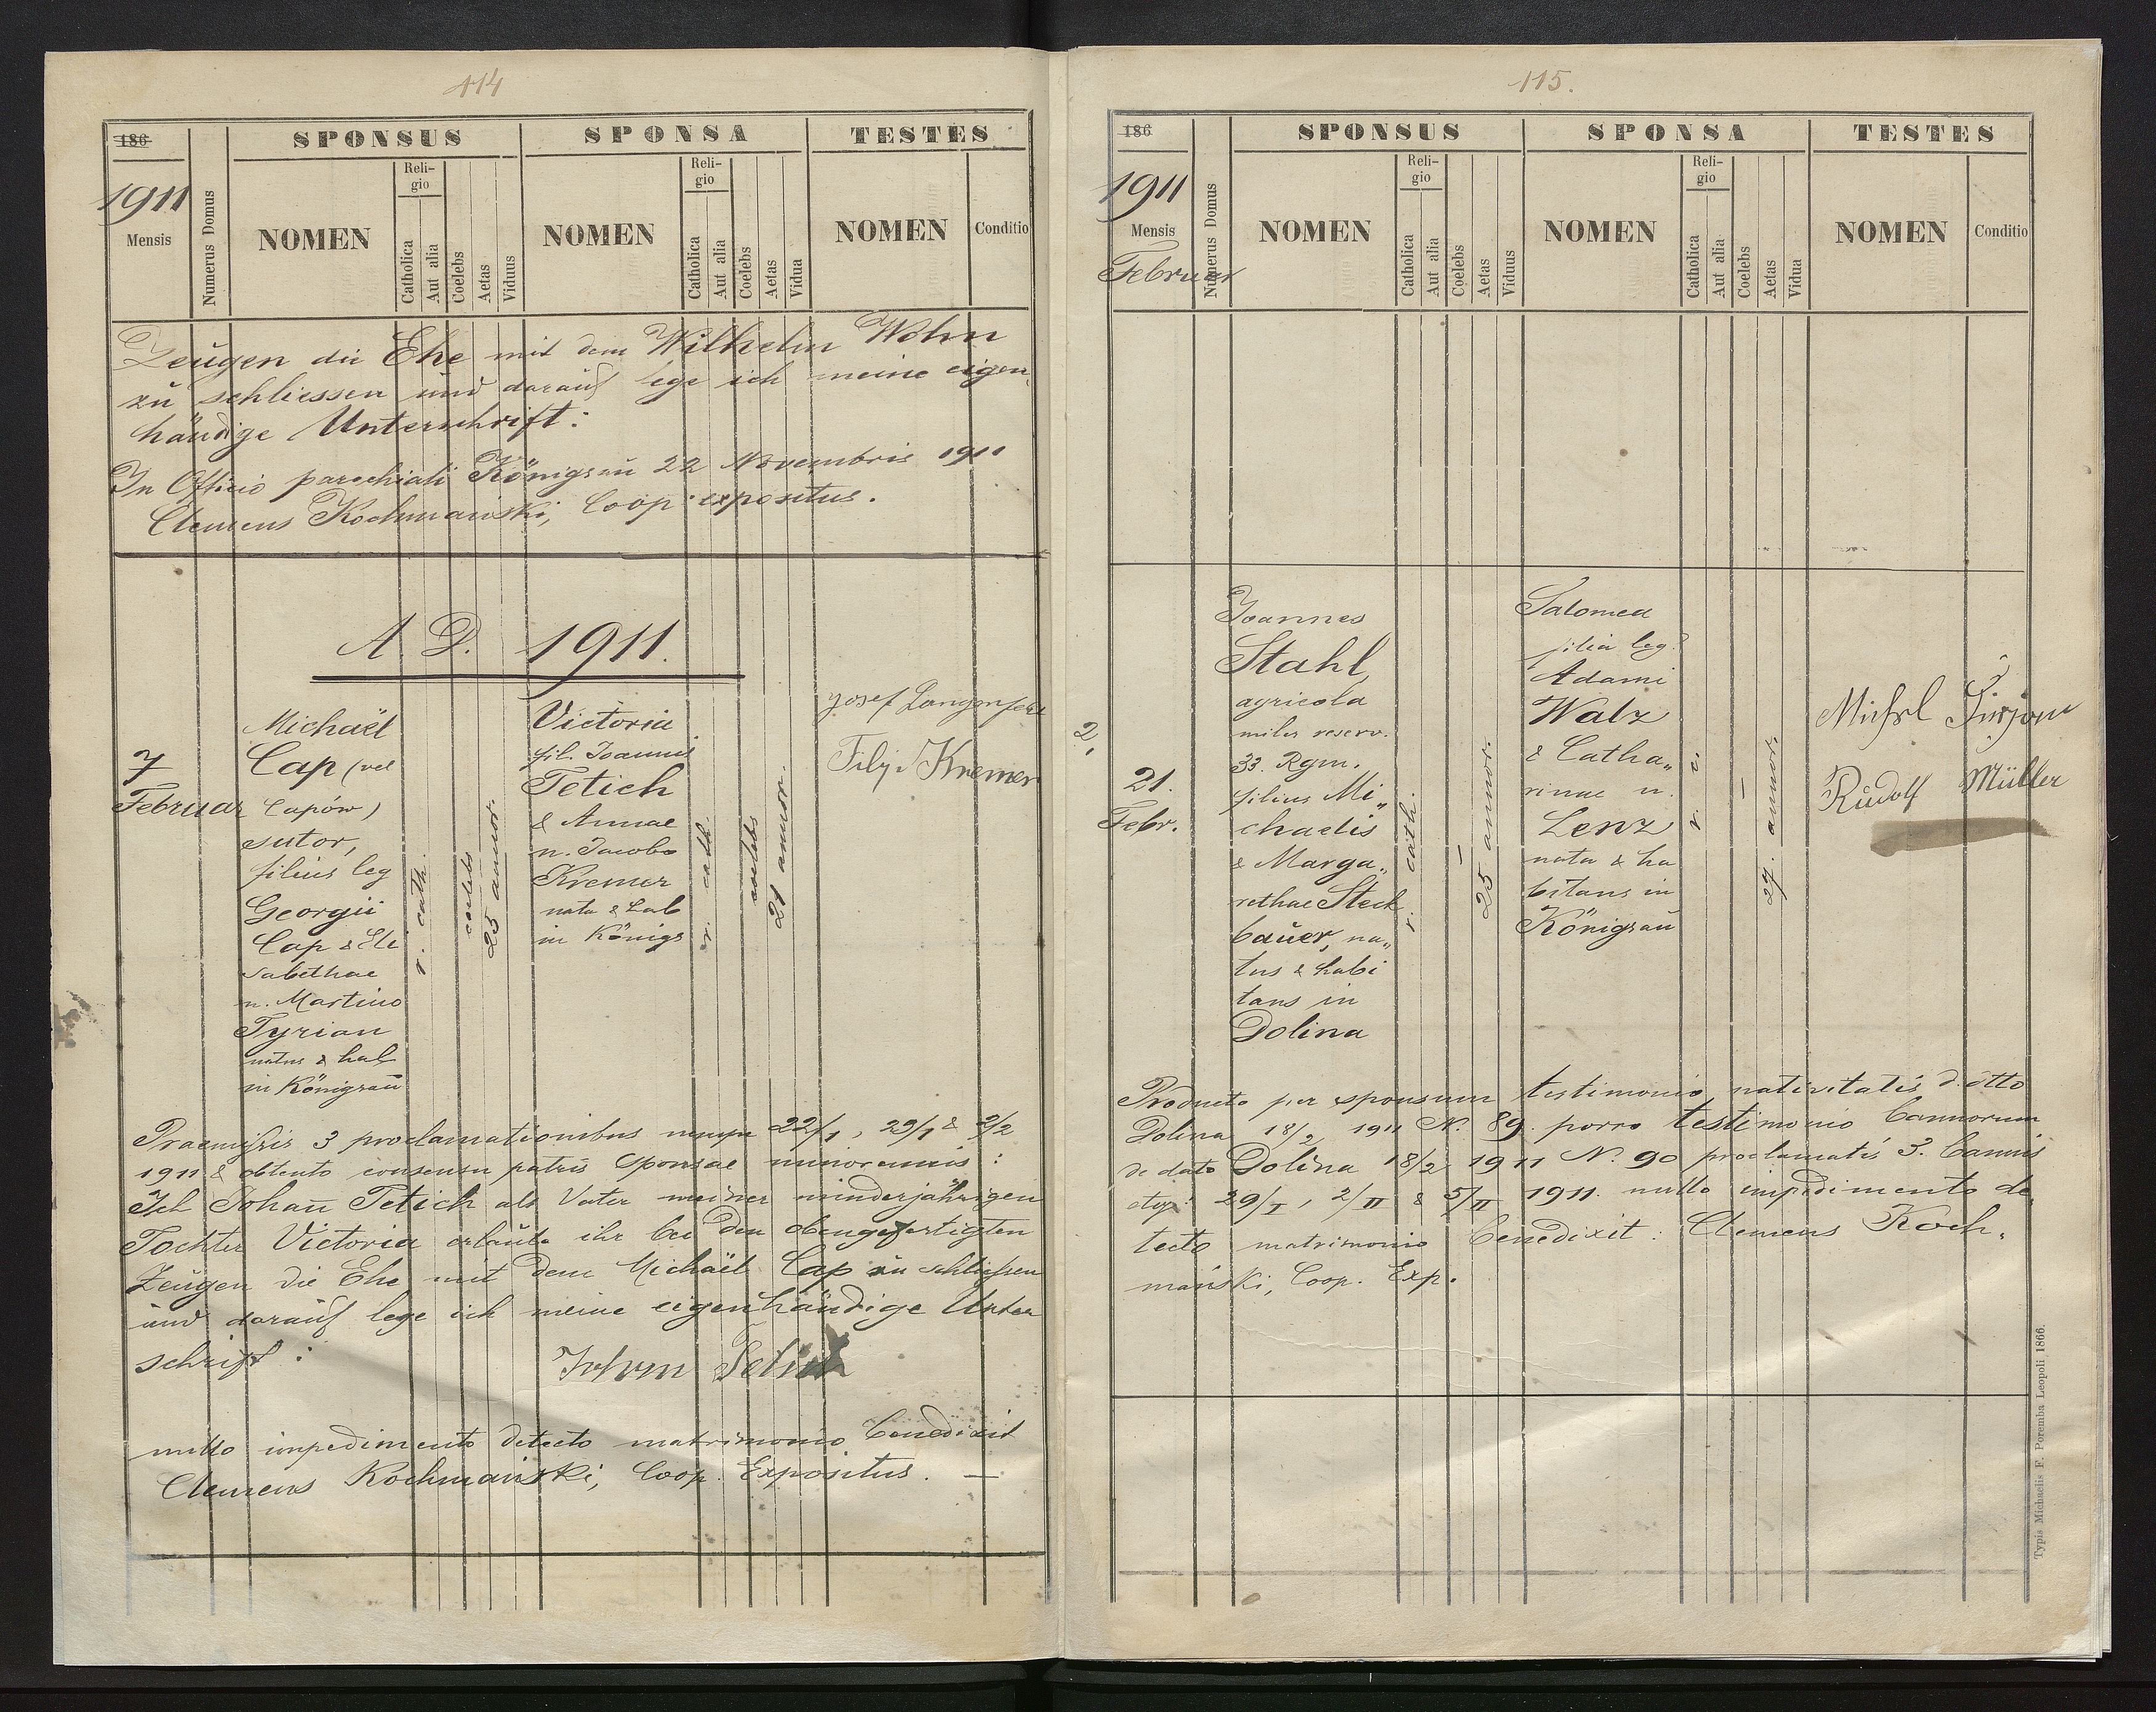 114
186
1911
Mensis
Numerus Domus
SPONSUS
NOMEN
Reli-
gio
Catholica
Aut alia
Coelebs
Aetas
Viduus
SPONSA
NOMEN
Reli-
gio
Catholica
Aut alia
Coelebs
Aetas
Vidua
TESTES
NOMEN
Conditio
Zeugen die Ehe mit dem Wilhelm Wohn
zu schliessen und darauf lege ich meine eigen„
händige Unterschrift:
In Officio parochiali Königsau 22 Novembris 1911
Clemens Kochmański, Coop. expositus.
A. D. 1911.
7
Februar
Michaël
Cap (vel
Capów)
sutor,
filius leg
Georgii
Cap & Eli
sabethae
n. Martino
Tyrian
natus & hab
in Königsau
r. cath.
coelebs
25 annor.
Victoria
fil. Joannis
Tetich
& Annae
n. Jacobo
Kremer
nata & hab
in Königs
r. cath.
coelebs
21 annor.
Josef
Filip Kremer
Praemissis 3 proclamationibus nempe 22/1, 29/1 & 2/2
1911 & obtento consensu patris sponsae minorennis:
Ich Johan̄ Tetich als Vater meiner minderjährigen
Tochter Victoria erlaube ihr bei den obengefertigten
Zeugen die Ehe mit dem Michaël Cap zu schliessen
und darauf lege ich meine eigenhändige Unter
schrift:
Johan Tetich
nullo impedimento detecto matrimonio benedixit
Clemens Kochmański, Coop. Expositus. —
115.
186
1911
Mensis
Februar
Numerus Domus
SPONSUS
NOMEN
Reli-
gio
Catholica
Aut alia
Coelebs
Aetas
Viduus
SPONSA
NOMEN
Reli-
gio
Catholica
Aut alia
Coelebs
Aetas
Vidua
TESTES
NOMEN
Conditio
2.
21.
Febr.
Joannes
Stahl,
agricola
miles reserv.
33. Rgm.
filius Mi„
chaelis
& Marga„
rethae Steck
bauer, na„
tus & habi
tans in
Dolina
r. cath.
—
25 annor.
Salomea
filia leg.
Adami
Walz
& Catha„
rinae n.
Lenz
nata & ha
bitans in
Königsau
r. c.
—
27. annor.
Michel
Rudolf Müller
Producto per sponsum testimonio nativitatis d. dtto
Dolina 18/2 1911 N. 89. porro testimonio bannorum
de dato Dolina 18/2 1911 N. 90 proclamatis 3. bannis
29/I, 2/II & 5/II 1911. nullo impedimento de„
tecto matrimonio benedixit: Clemens Koch„
mański, Coop. Exp.
Typis Michaelis F. Poremba Leopoli 1866.